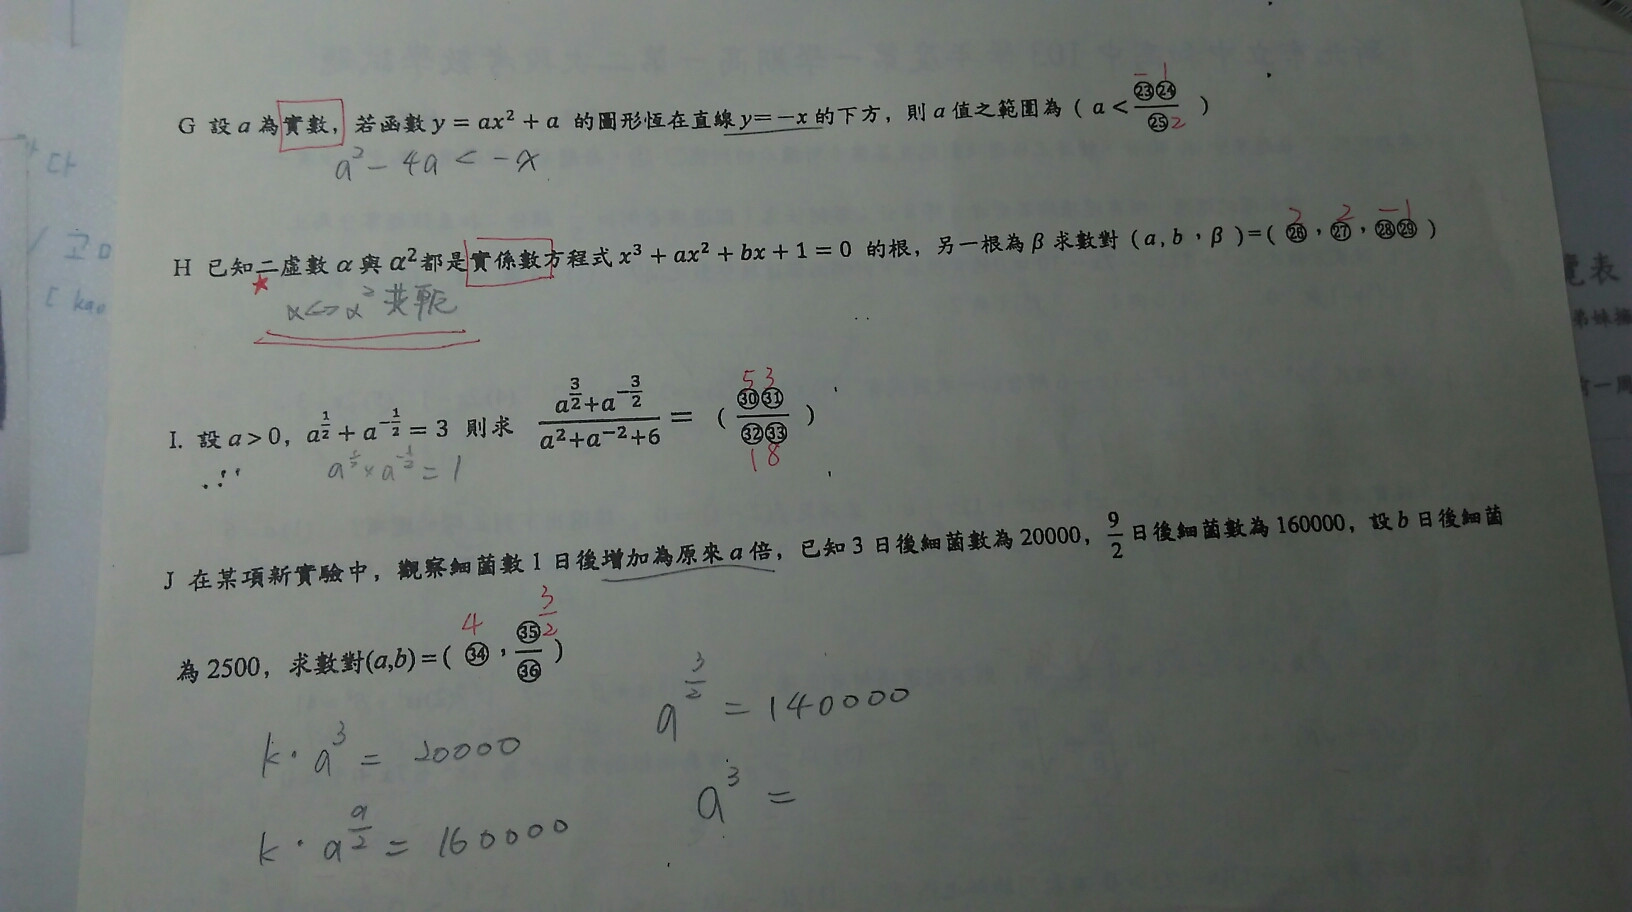 G 設 a 為實數，若函數 y = ax² + a 的圖形恆在直線 y=−x 的下方，則 a 值之範圍為 ( a < ㉓㉔/㉕ )
− 1
2
a² − 4a < −x
H 已知二虛數 α 與 α² 都是實係數方程式 x³ + ax² + bx + 1 = 0 的根，另一根為 β 求數對 (a, b，β)=( ㉖，㉗，㉘㉙ )
2 2 −1
★
α↔α² 共軛
I. 設 a > 0，a^(1/2) + a^(−1/2) = 3 則求 (a^(3/2)+a^(−3/2))/(a²+a⁻²+6) = ( ㉚㉛/㉜㉝ )
5 3
1 8
∴ a^(1/2) × a^(−1/2) = 1
J 在某項新實驗中，觀察細菌數 1 日後增加為原來 a 倍，已知 3 日後細菌數為 20000，9/2 日後細菌數為 160000，設 b 日後細菌
為 2500，求數對(a,b)=( ㉞，㉟/㊱ )
4 3/2
k·a³ = 20000
a^(3/2) = 140000
k·a^(9/2) = 160000
a³ =
覽表
弟妹
一周